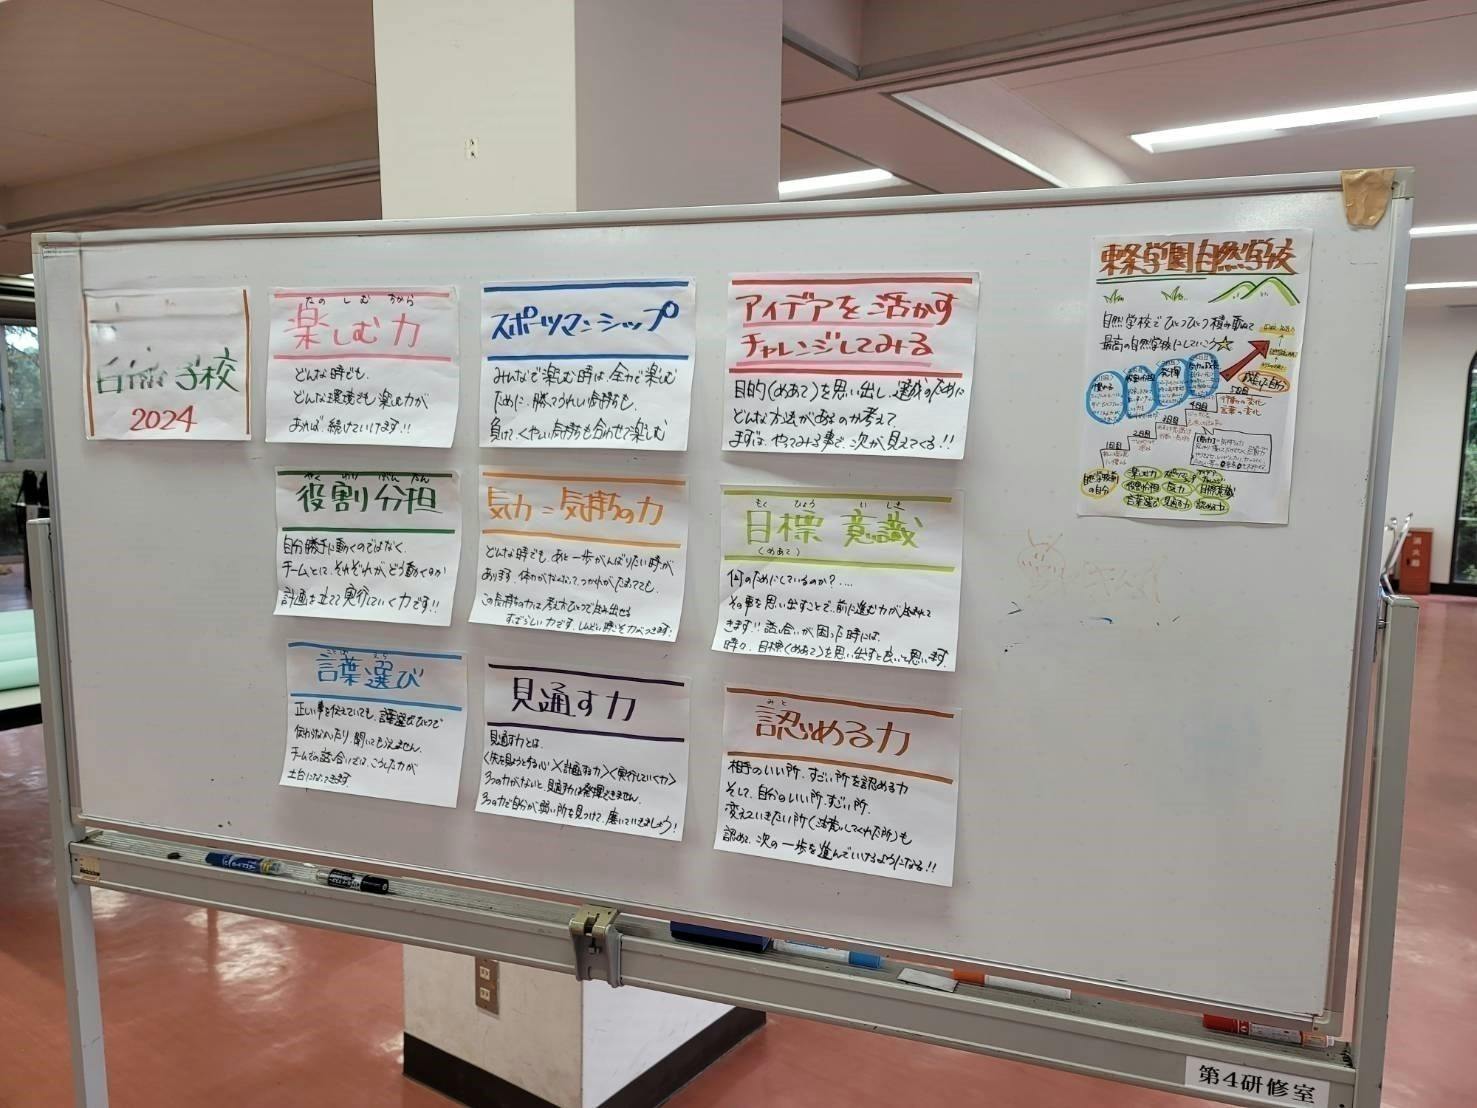 学校
2024
たの し む ちから
楽しむ力
どんな時でも、
どんな環境でも楽しむ力が
あれば、続けていけます!!
スポーツマンシップ
みんなで楽しむ時は、全力で楽しむ
ために、勝てうれしい気持ちも、
負けて、くやしい気持ちも合わせて楽しむ
アイデアを活かす
チャレンジしてみる
目的(めあて)を思い出し、達成のために
どんな方法があるのか考えて
まずは、やってみる事で、次が見えてくる!!
やく わり ぶん たん
役割分担
自分勝手に動くのではなく、
チームとして、それぞれが、どう動くのか
計画を立てて実行していく力です!!
気力=気持ちの力
どんな時でも、あと一歩がんばりたい時が
あります。体力がなくなって、つかれがたまってても、
この気持ちの力は、考え方ひとつで生み出せる
すばらしい力です。しんどい時こそ力がつきます!
もく ひょう い しき
目標意識
(めあて)
何のためにしているのか?....
その事を思い出すことで、前に進む力が生まれて
きます!!話し合いが困った時には、
時々、目標(めあて)を思い出すと良いと思います。
ことば えら
言葉選び
正しい事を伝えていても、言葉選びひとつで
伝わらなかったり、聞いてもらえません。
チームでの話し合いでは、こうした力が
土台になってきます。
見通す力
見通す力とは、
<先を見ようとする心>×<計画する力>×<実行していく力>
3つの力がないと、見通す力は発揮できません。
3つの力で自分が弱い所を見つけて、磨いていきましょう!
みと
認める力
相手のいい所、すごい所を認める力
そして、自分のいい所、すごい所、
変えていきたい所(注意してくれた所)も
認めて、次の一歩を進んでいけるようになる!!
東条学園自然学校
自然学校でひとつひとつ積み重ねて
最高の自然学校にしていこう☆
1日目
2日目
3日目
4日目
5日目
行動の変化
言葉の変化
自然学校前
の自分
楽しむ力
役割分担
気力
目標意識
言葉選び
見通す力
認める力
第4研修室